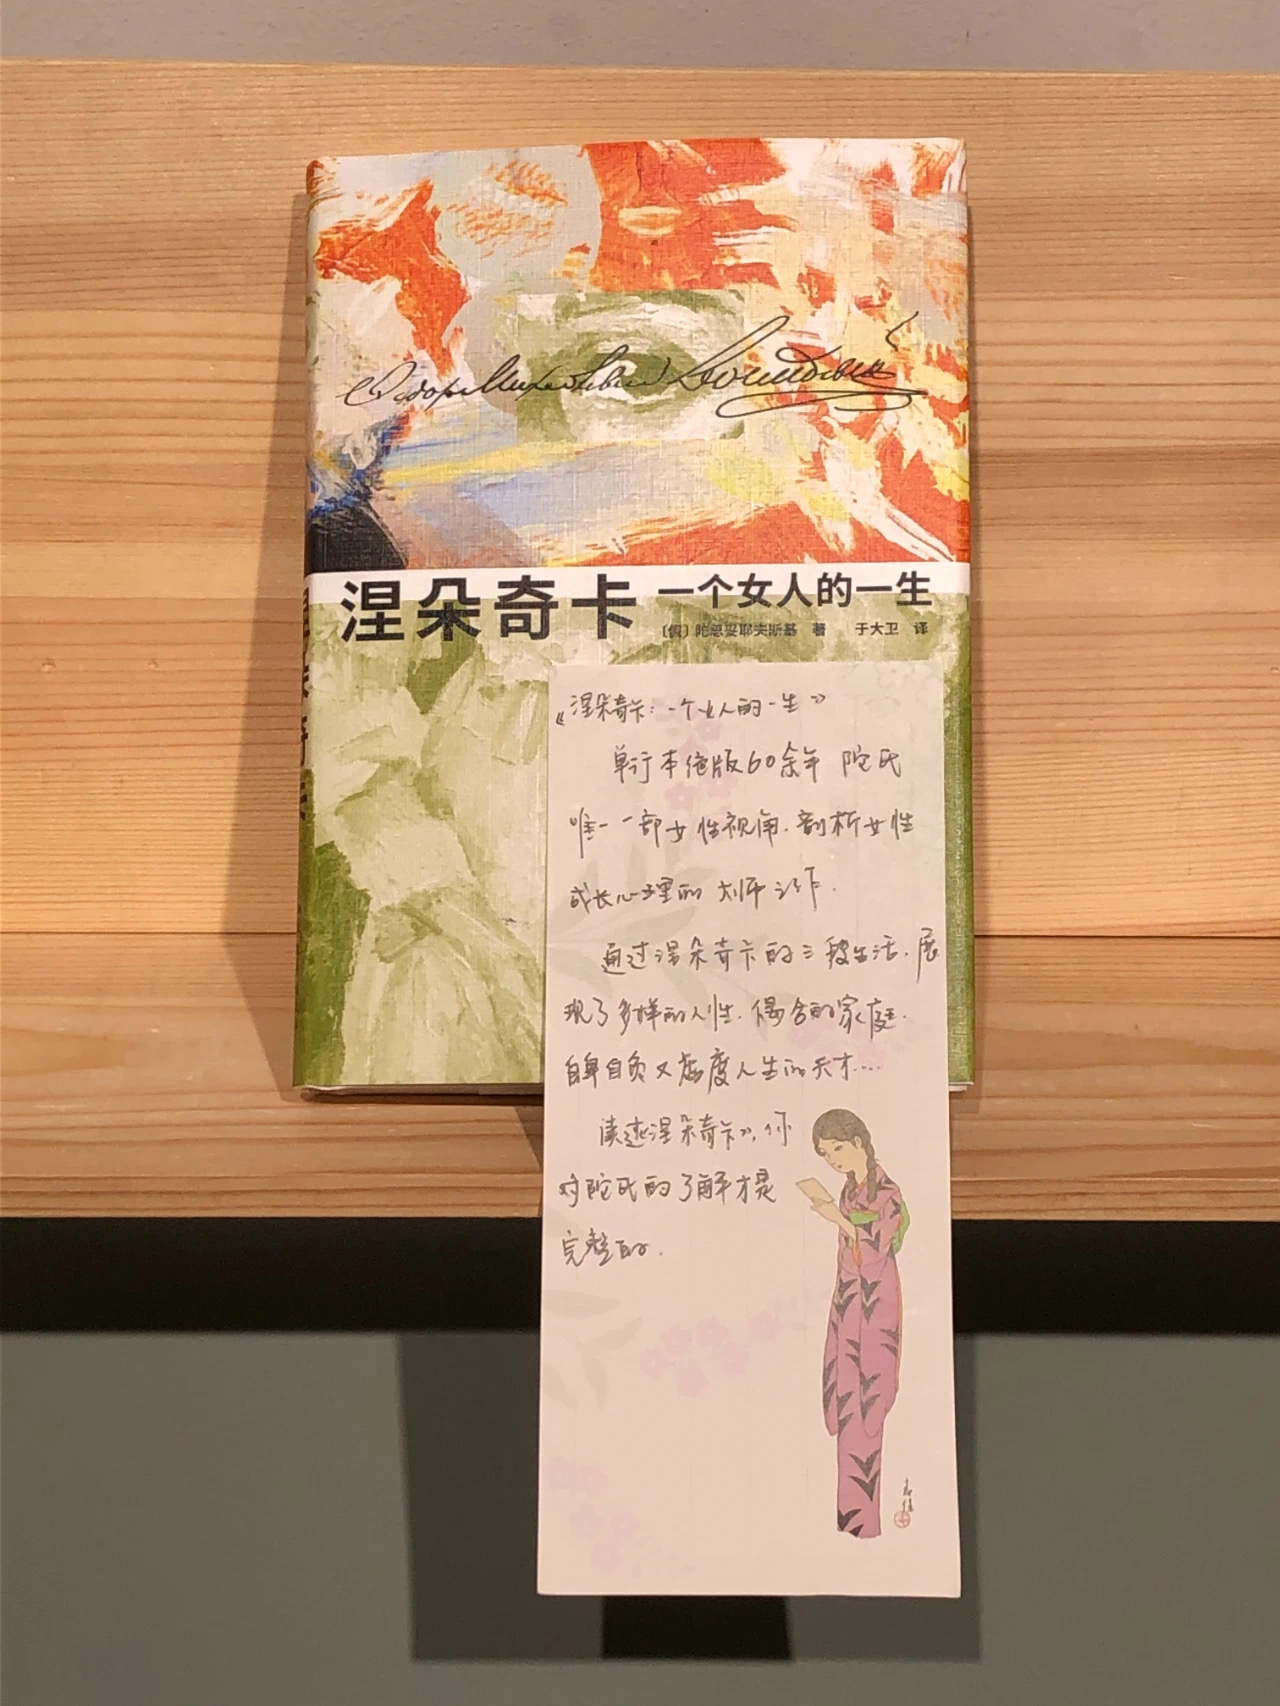 涅朵奇卡 一个女人的一生
〔俄〕陀思妥耶夫斯基 著 于大卫 译
《涅朵奇卡：一个女人的一生》
单行本绝版60余年 陀氏
唯一一部女性视角.剖析女性
成长心理的大师之作.
通过涅朵奇卡的三段生活.展
现了多样的人性.偶合的家庭.
自卑自负又虚度人生的天才....
读过《涅朵奇卡》,你
对陀氏的了解才是
完整的.